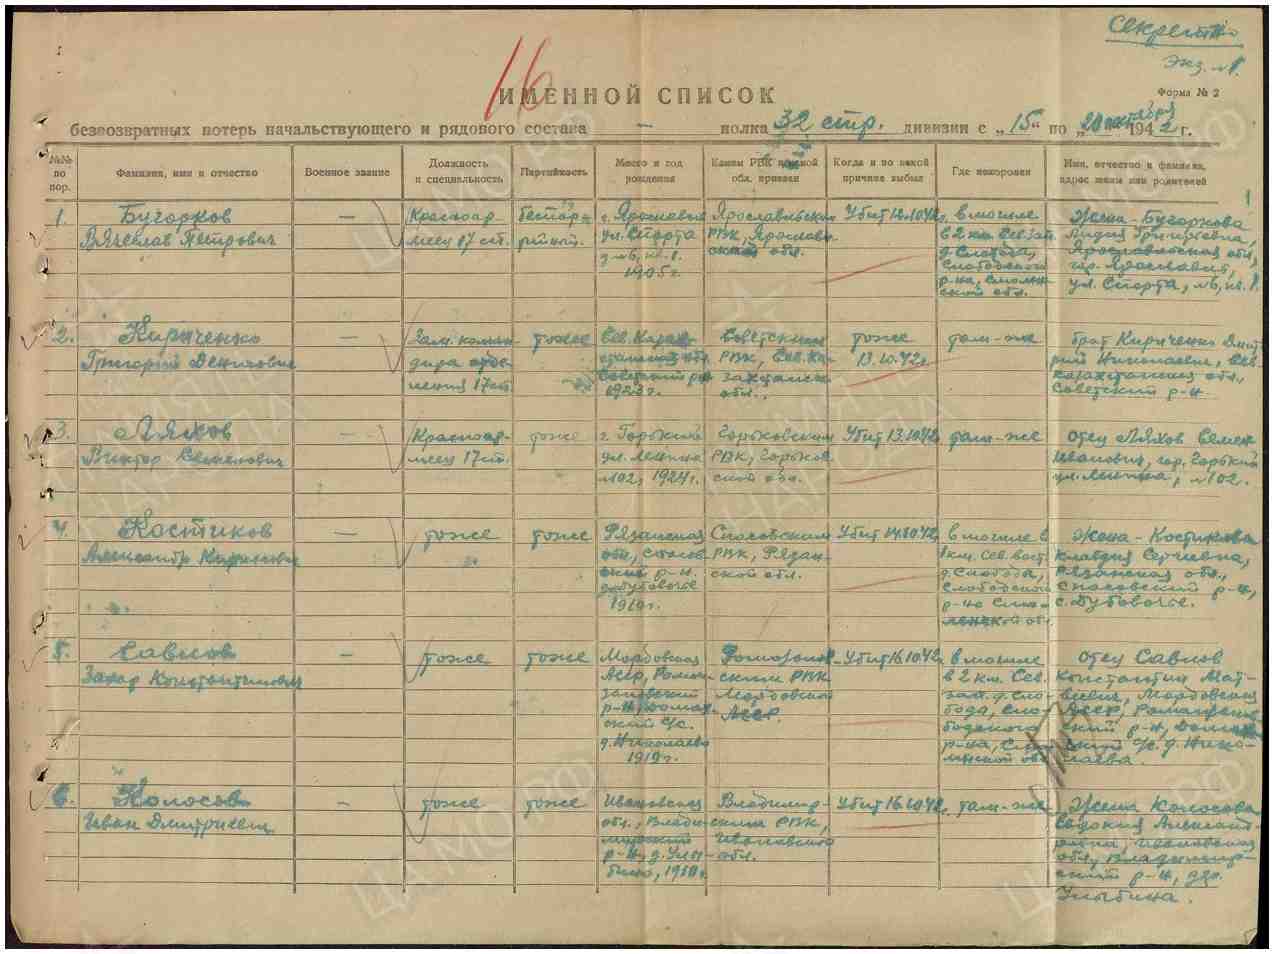 Секретно
Экз. №1.
16
Форма № 2
ИМЕННОЙ СПИСОК
безвозвратных потерь начальствующего и рядового состава — полка 32 стр. дивизии с „15“ по „20 октября 1942 г.
№№ по пор.
Фамилия, имя и отчество
Военное звание
Должность и специальность
Партийность
Место и год рождения
Каким РВК какой обл. призван
Когда и по какой причине выбыл
Где похоронен
Имя, отчество и фамилия, адрес жены или родителей
1
1.
Бугорков
Вячеслав Петрович
—
Красноар-
меец 17 сп.
беспар-
тийный.
г. Ярославль
ул. Спорта
д №6, кв. 1.
1905 г.
Ярославским
РВК, Ярослав-
ской обл.
Убит 12.10.42
в могиле
в 2 км. Сев. зап.
д. Слобода,
Слободского
р-на, Смолен-
ской обл.
Жена - Бугоркова
Лидия Григорьевна,
Ярославская обл,
гор. Ярославль,
ул. Спорта, №6, кв. 1.
2.
Кириченко
Григорий Денисович
—
Зам. коман-
дира отде-
ления 17 сп.
тоже
Сев. Казах-
станская обл.
Советский р-н
1923 г.
Советским
РВК, Сев. Ка-
захстанск.
обл.
тоже
13.10.42 г.
там-же
брат Кириченко Дмит
рий Николаевич, Сев-
казахстанская обл.,
Советский р-н.
3.
Ляхов
Виктор Семенович
—
Красноар-
меец 17 сп.
тоже
г. Горький
ул. Ленина
№102, 1924 г.
Горьковским
РВК, Горьков
ской обл.
Убит 13.10.42
там-же
отец Ляхов Семен
Иванович, гор. Горький
ул. Ленина, №102.
4.
Костиков
Александр Кириллович
—
тоже
тоже
Рязанская
обл, Спасов
ский р-н.
с. Дубовочье
1919 г.
Спасовским
РВК, Рязан-
ской обл.
Убит 14.10.42
в могиле в
1 км. Сев. вост.
д. Слобода,
Слободского
р-на Смо-
ленской обл.
Жена - Костикова
Клавдия Сергеевна,
Рязанская обл.,
Спасовский р-н,
с. Дубовочье.
5.
Савлов
Захар Константинович
—
тоже
тоже
Мордовская
АССР, Ромо-
дановский
р-н,
ский с/с.
д. Николаевка
1919 г.
Ромоданов-
ским РВК
Мордовской
АССР.
Убит 16.10.42
в могиле
в 2 км. Сев.
зап. д. Сло-
бода, Сло-
бодского
р-на, Смо-
ленской обл.
отец Савлов
Константин Мат-
веевич, Мордовская
АССР, Ромоданов-
ский р-н,
ский с/с. д. Нико-
лаевка.
6.
Колосов
Иван Дмитриевич
—
тоже
тоже
Ивановская
обл., Влади-
мирский
р-н, д. Улы-
бино, 1910 г.
Владимир-
ским РВК,
Ивановской
обл.
Убит 16.10.42
там-же
Жена Колосова
Евдокия Александ-
ровна, Ивановская
обл, Владимир-
ский р-н, дер.
Улыбина.
ПАМЯТЬ НАРОДА
ЦАМО РФ